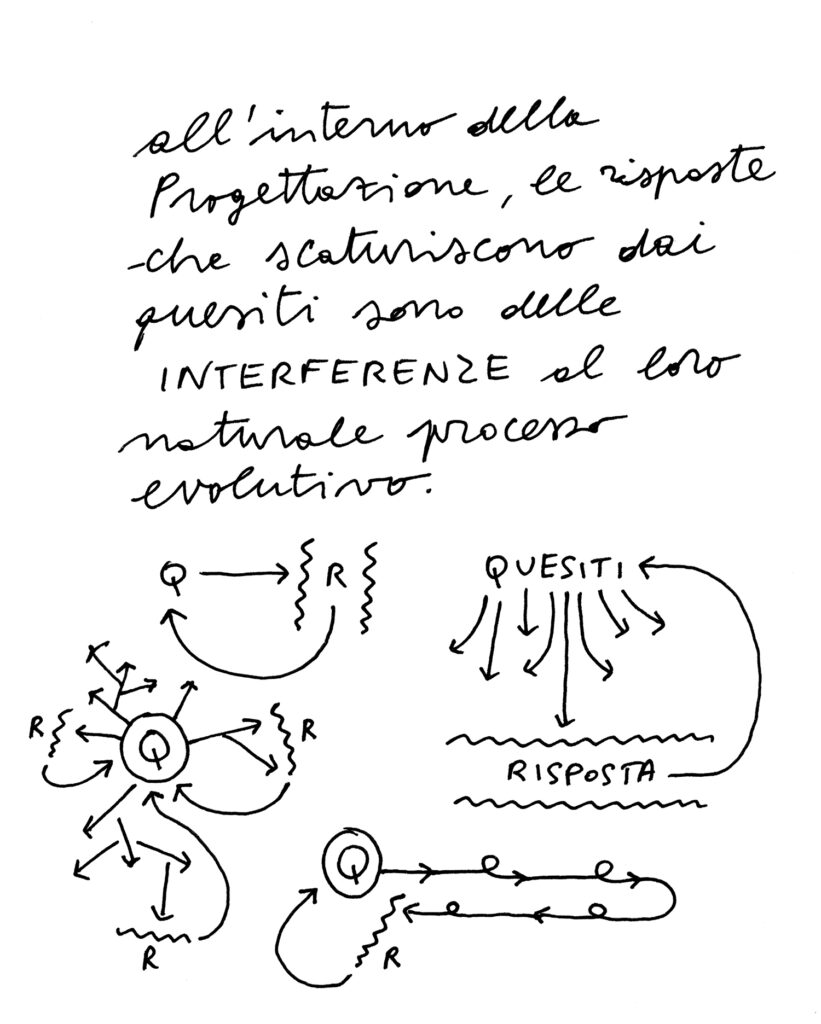 all'interno della
Progettazione, le risposte
che scaturiscono dai
quesiti sono delle
INTERFERENZE al loro
naturale processo
evolutivo.
Q R
QUESITI
R Q R
RISPOSTA
Q
R
R